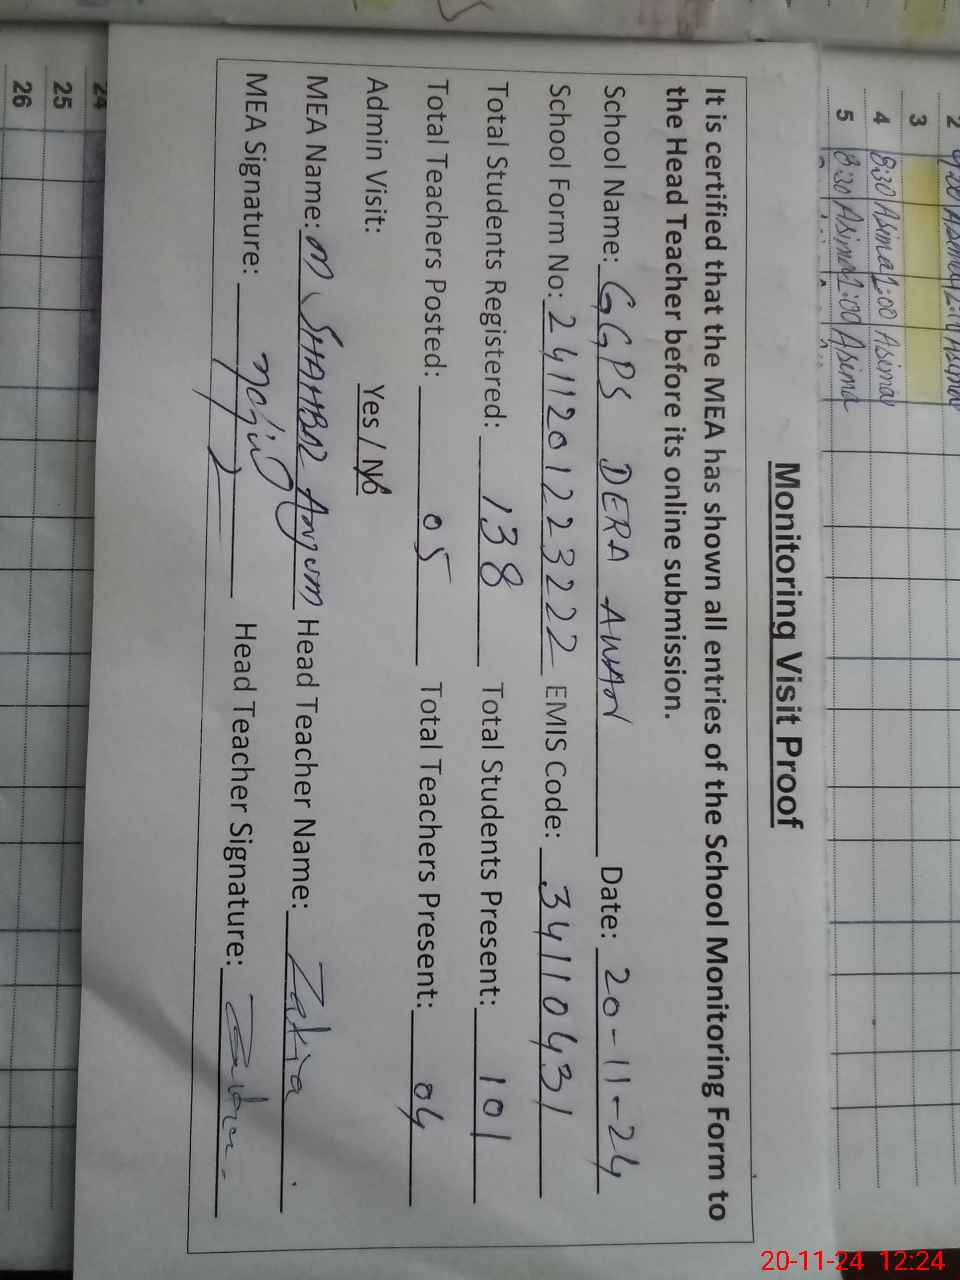 Monitoring Visit Proof
It is certified that the MEA has shown all entries of the School Monitoring Form to
the Head Teacher before its online submission.
School Name: GGPS DERA AWAN Date: 20-11-24
School Form No: 2411201223222 EMIS Code: 34110431
Total Students Registered: 138 Total Students Present: 101
Total Teachers Posted: 05 Total Teachers Present: 04
Admin Visit: Yes / No
MEA Name: M SHAHBAZ Anjum Head Teacher Name: Zakia
MEA Signature: Head Teacher Signature:
2 Asima
3
4 8:30 Asima 1:00 Asima
5 8:30 Asima 1:00 Asima
24
25
26
20-11-24 12:24